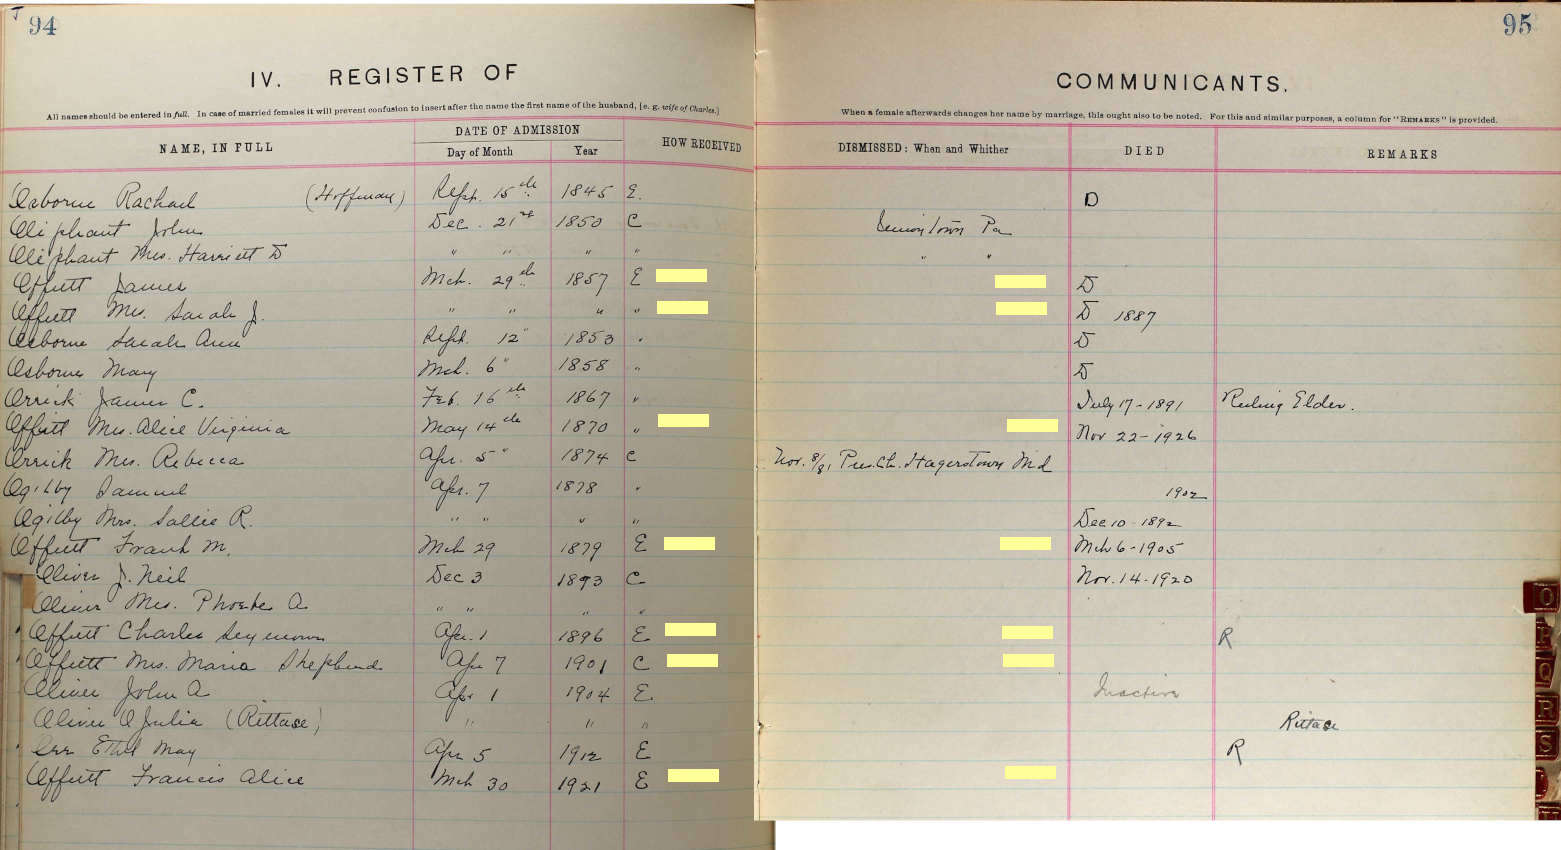 94
IV. REGISTER OF
All names should be entered in full. In case of married females it will prevent confusion to insert after the name the first name of the husband, [e. g. wife of Charles.]
NAME, IN FULL DATE OF ADMISSION HOW RECEIVED
Day of Month Year
Osborne Rachael (Hoffman) Sept. 15th 1845 E.
Oliphant John Dec. 21st 1850 C
Oliphant Mrs. Harriett D " " " "
Offutt James Mch. 29th 1857 E
Offutt Mrs. Sarah J. " " " "
Osborne Sarah Ann Sept. 12" 1853 "
Osborne Mary Mch. 6" 1858 "
Orrick James C. Feb. 16th 1867 "
Offutt Mrs. Alice Virginia May 14th 1870 "
Orrick Mrs. Rebecca Apr. 5" 1874 C
Ogilby Samuel Apr. 7 1878 "
Ogilby Mrs. Sallie R. " " " "
Offutt Frank M. Mch 29 1879 E
Oliver J. Neil Dec 3 1893 C
Oliver Mrs. Phoebe A. " " " "
Offutt Charles Seymour Apr. 1 1896 E
Offutt Mrs. Maria Shepherd Apr 7 1901 C
Oliver John A Apr 1 1904 E
Oliver Julia (Rittase) " " "
Orr Ethel May Apr 5 1912 E
Offutt Francis Alice Mch 30 1921 E
95
COMMUNICANTS.
When a female afterwards changes her name by marriage, this ought also to be noted. For this and similar purposes, a column for "REMARKS" is provided.
DISMISSED: When and Whither DIED REMARKS
D
Uniontown Pa
" "
D
D 1887
D
D
July 17-1891 Ruling Elder.
Nov 22-1926
Nov. 8/81 Pres. Ch. Hagerstown Md
1902
Dec 10-1892
Mch 6-1905
Nov. 14-1920
R
Inactive
Rittase
R
O
P
Q
R
S